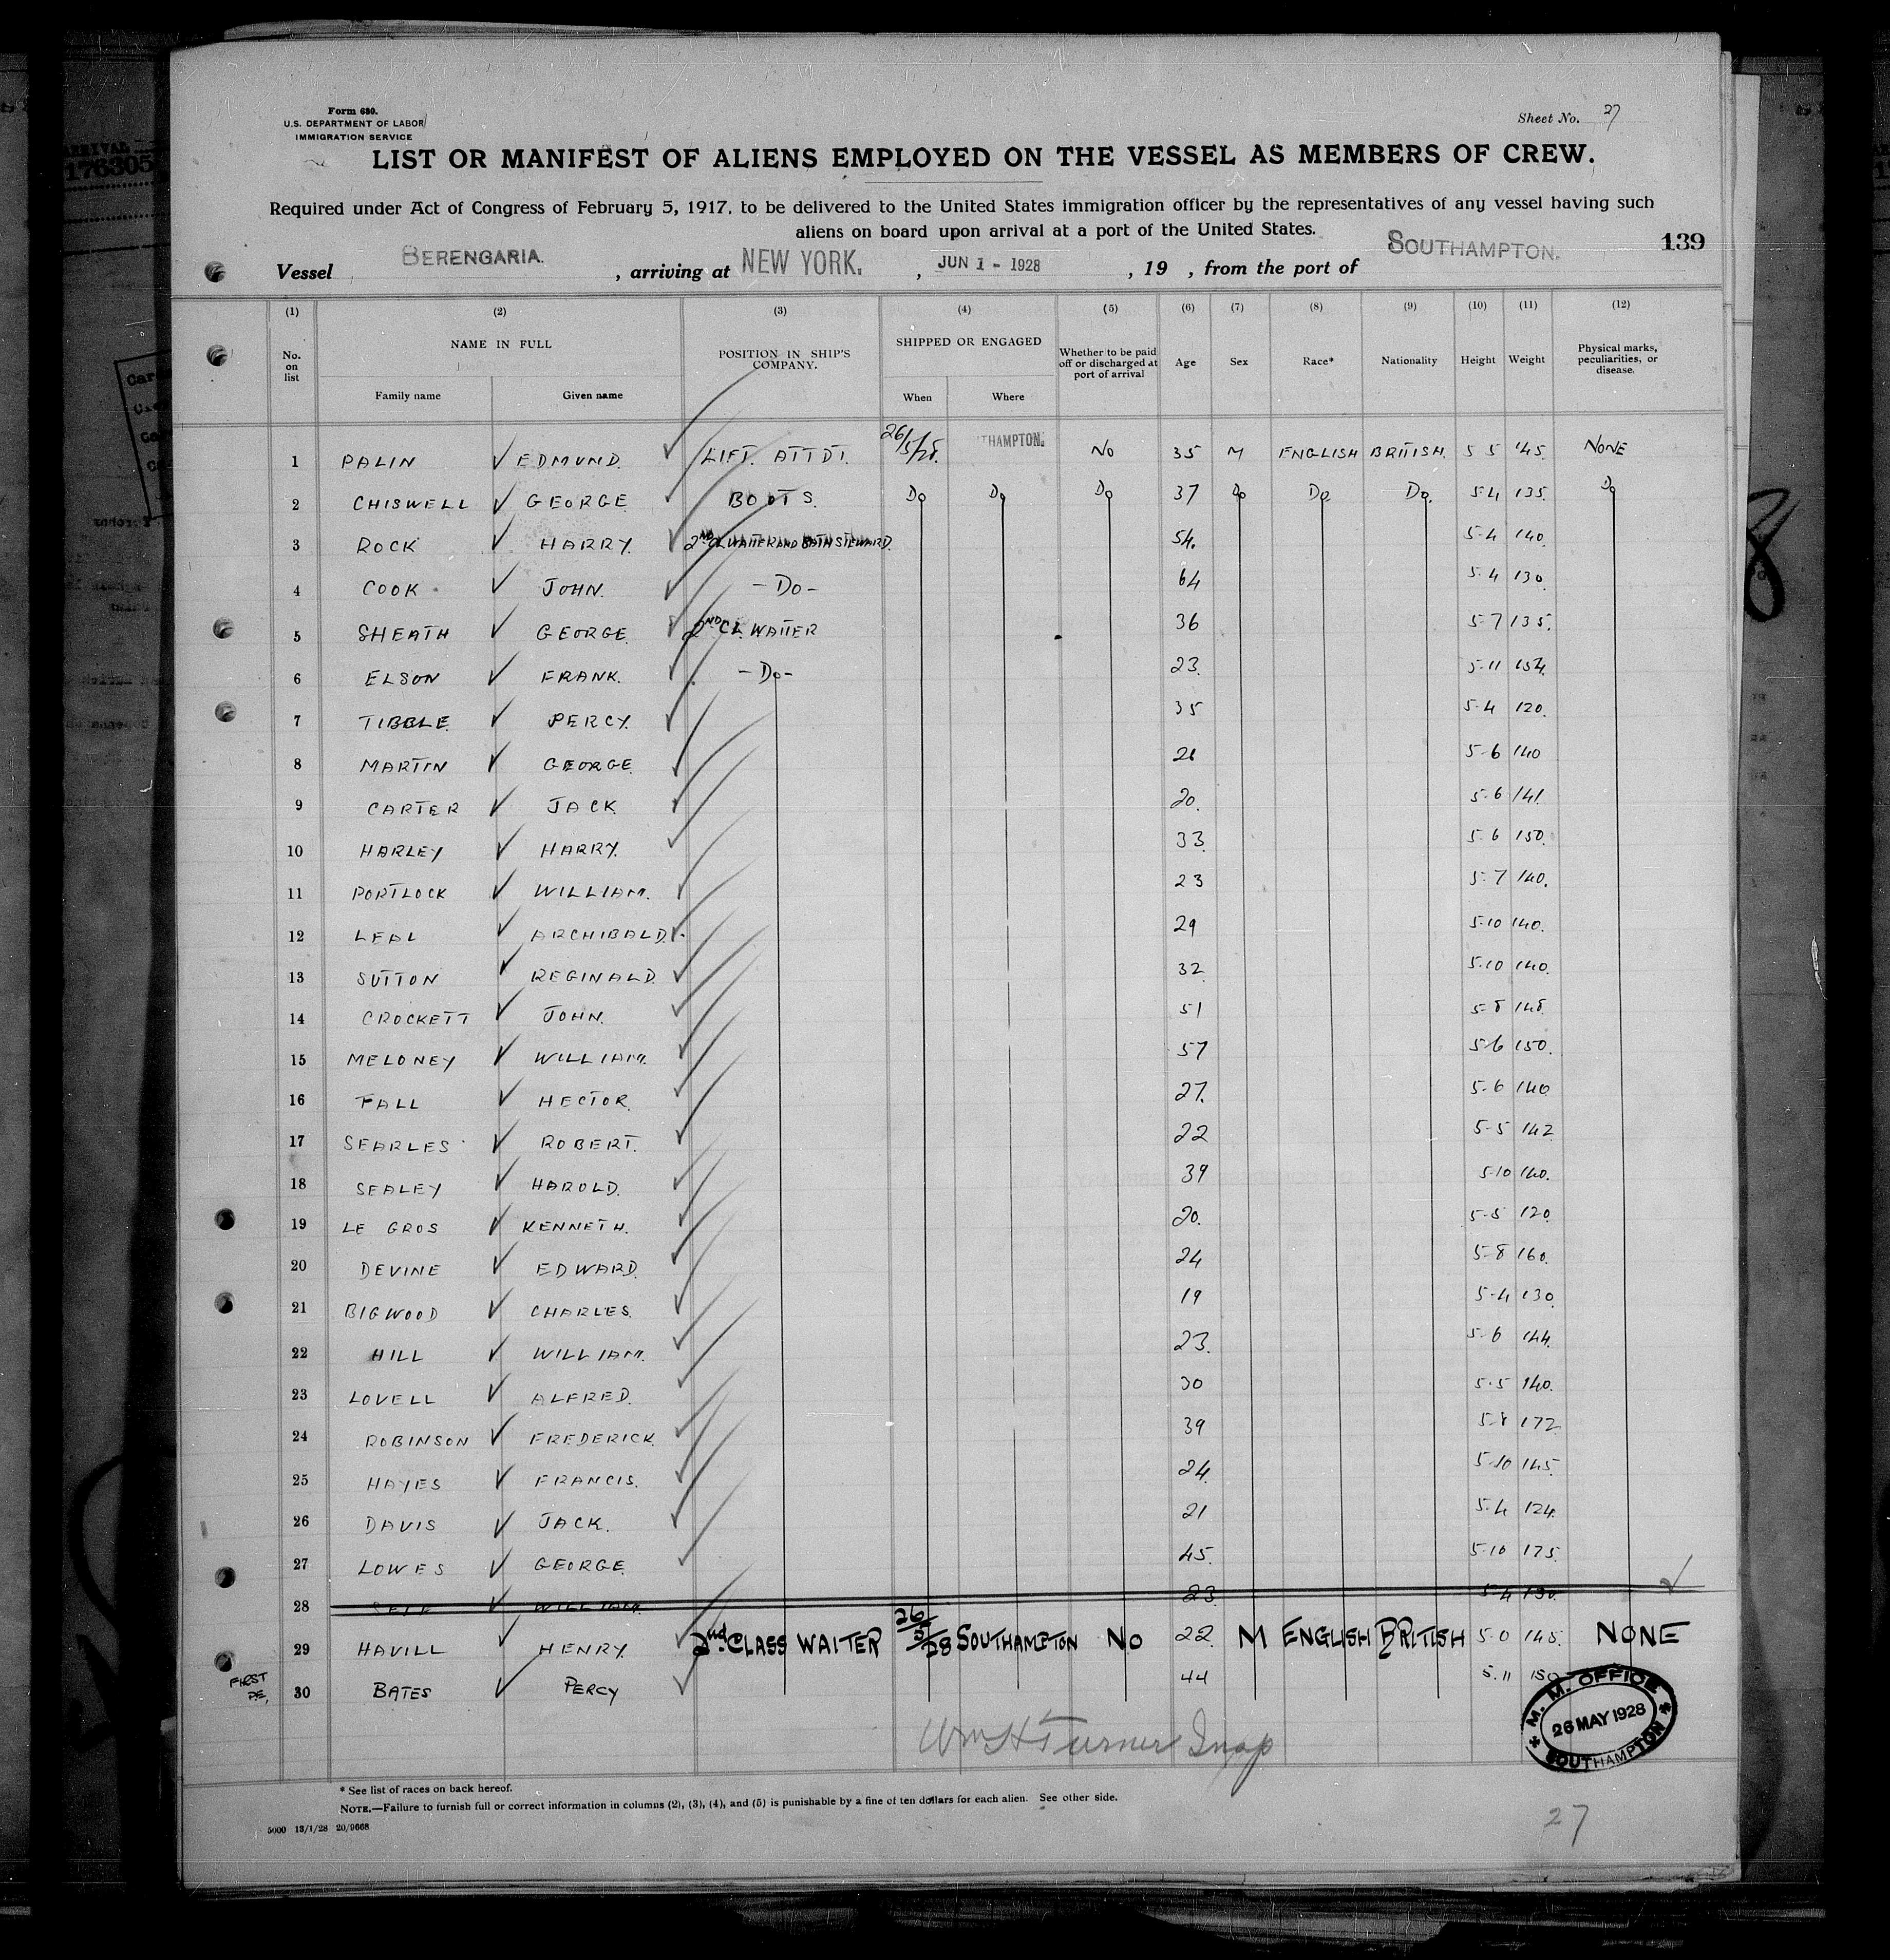 Form 680.
U.S. DEPARTMENT OF LABOR
IMMIGRATION SERVICE
Sheet No. 27
LIST OR MANIFEST OF ALIENS EMPLOYED ON THE VESSEL AS MEMBERS OF CREW.
Required under Act of Congress of February 5, 1917, to be delivered to the United States immigration officer by the representatives of any vessel having such
aliens on board upon arrival at a port of the United States.
139
Vessel BERENGARIA. , arriving at NEW YORK. , JUN 1 - 1928 , 19 , from the port of SOUTHAMPTON.
(1) (2) (3) (4) (5) (6) (7) (8) (9) (10) (11) (12)
No. on list NAME IN FULL POSITION IN SHIP'S COMPANY. SHIPPED OR ENGAGED Whether to be paid off or discharged at port of arrival Age Sex Race* Nationality Height Weight Physical marks, peculiarities, or disease.
Family name Given name When Where
1 PALIN EDMUND. LIFT. ATTDT. 26/5/28. THAMPTON. NO 35 M ENGLISH BRITISH. 5 5 145. NONE
2 CHISWELL GEORGE BOOTS. Do Do Do 37 Do Do Do. 5-4 135. Do
3 ROCK HARRY. 2ND CL WAITER AND BATH STEWARD. 54. 5-4 140.
4 COOK JOHN. -Do- 64 5-4 130.
5 SHEATH GEORGE. 2ND CL. WAITER 36 5-7 135.
6 ELSON FRANK. -Do- 23. 5-11 154.
7 TIBBLE. PERCY. 35 5-4 120.
8 MARTIN GEORGE. 5-6 140
9 CARTER JACK 20. 5-6 141.
10 HARLEY HARRY. 33. 5-6 150.
11 PORTLOCK WILLIAM. 23 5-7 140.
12 LEAL ARCHIBALD. 29 5-10 140.
13 SUTTON REGINALD. 32 5-10 140.
14 CROCKETT JOHN. 51 5-8 148.
15 MELONEY WILLIAM. 57 5-6 150.
16 FALL HECTOR. 27. 5-6 140
17 SEARLES ROBERT. 22 5-5 142
18 SEALEY HAROLD. 39 5-10 140.
19 LE GROS KENNETH. 20. 5-5 120.
20 DEVINE EDWARD. 24 5-8 160.
21 BIGWOOD CHARLES. 19 5-4 130.
22 HILL WILLIAM. 23. 5-6 144.
23 LOVELL ALFRED. 30 5-5 140.
24 ROBINSON FREDERICK. 39 5-8 172
25 HAYES FRANCIS. 24. 5-10 145.
26 DAVIS JACK. 21 5-4 124.
27 LOWES GEORGE. 45. 5-10 175.
28 WILLIAM. 23. 5-4 130.
29 HAVILL HENRY. 2nd CLASS WAITER 26/5/28 SOUTHAMPTON NO 22. M ENGLISH BRITISH 5-0 145. NONE
FIRST
30 BATES PERCY 44 5-11 150
Wm H Turner Insp
M. M. OFFICE
26 MAY 1928
SOUTHAMPTON
* See list of races on back hereof.
NOTE.—Failure to furnish full or correct information in columns (2), (3), (4), and (5) is punishable by a fine of ten dollars for each alien. See other side.
5000 13/1/28 20/9668
27